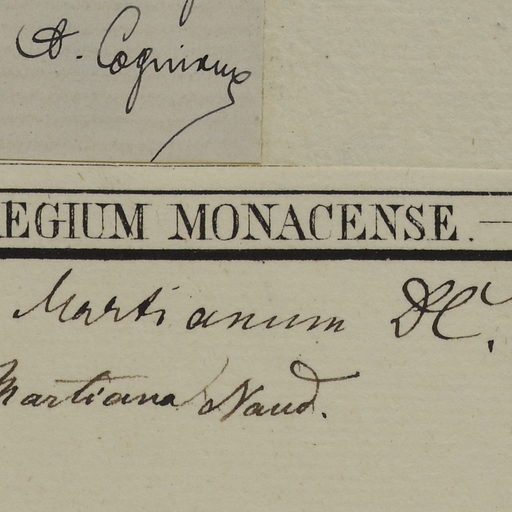 A. Cogniaux
REGIUM MONACENSE. —
Martianum DC.
Martiana Naud.